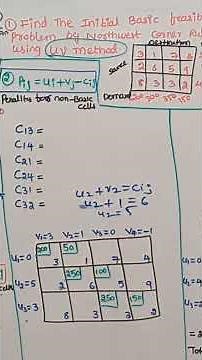 ① Find the Initial Basic feasib
Problem by Northwest Corner Ru
using UV method
Destination
Source
3 1 7 4
2 6 5 9
8 3 3 2
Demand
② Aij = ui + vj - cij
Penalties for non-Basic
cells
C13 =
C14 =
C21 =
C24 =
C31 =
C32 =
u2 + v2 = cij
u2 + 1 = 6
u2 = 5
V1=3 V2=1 V3=0 V4=-1
u1=0
200 50
3 1 7 4
u2=5
250 100
2 6 5 9
u3=3
250 150
8 3 3 2